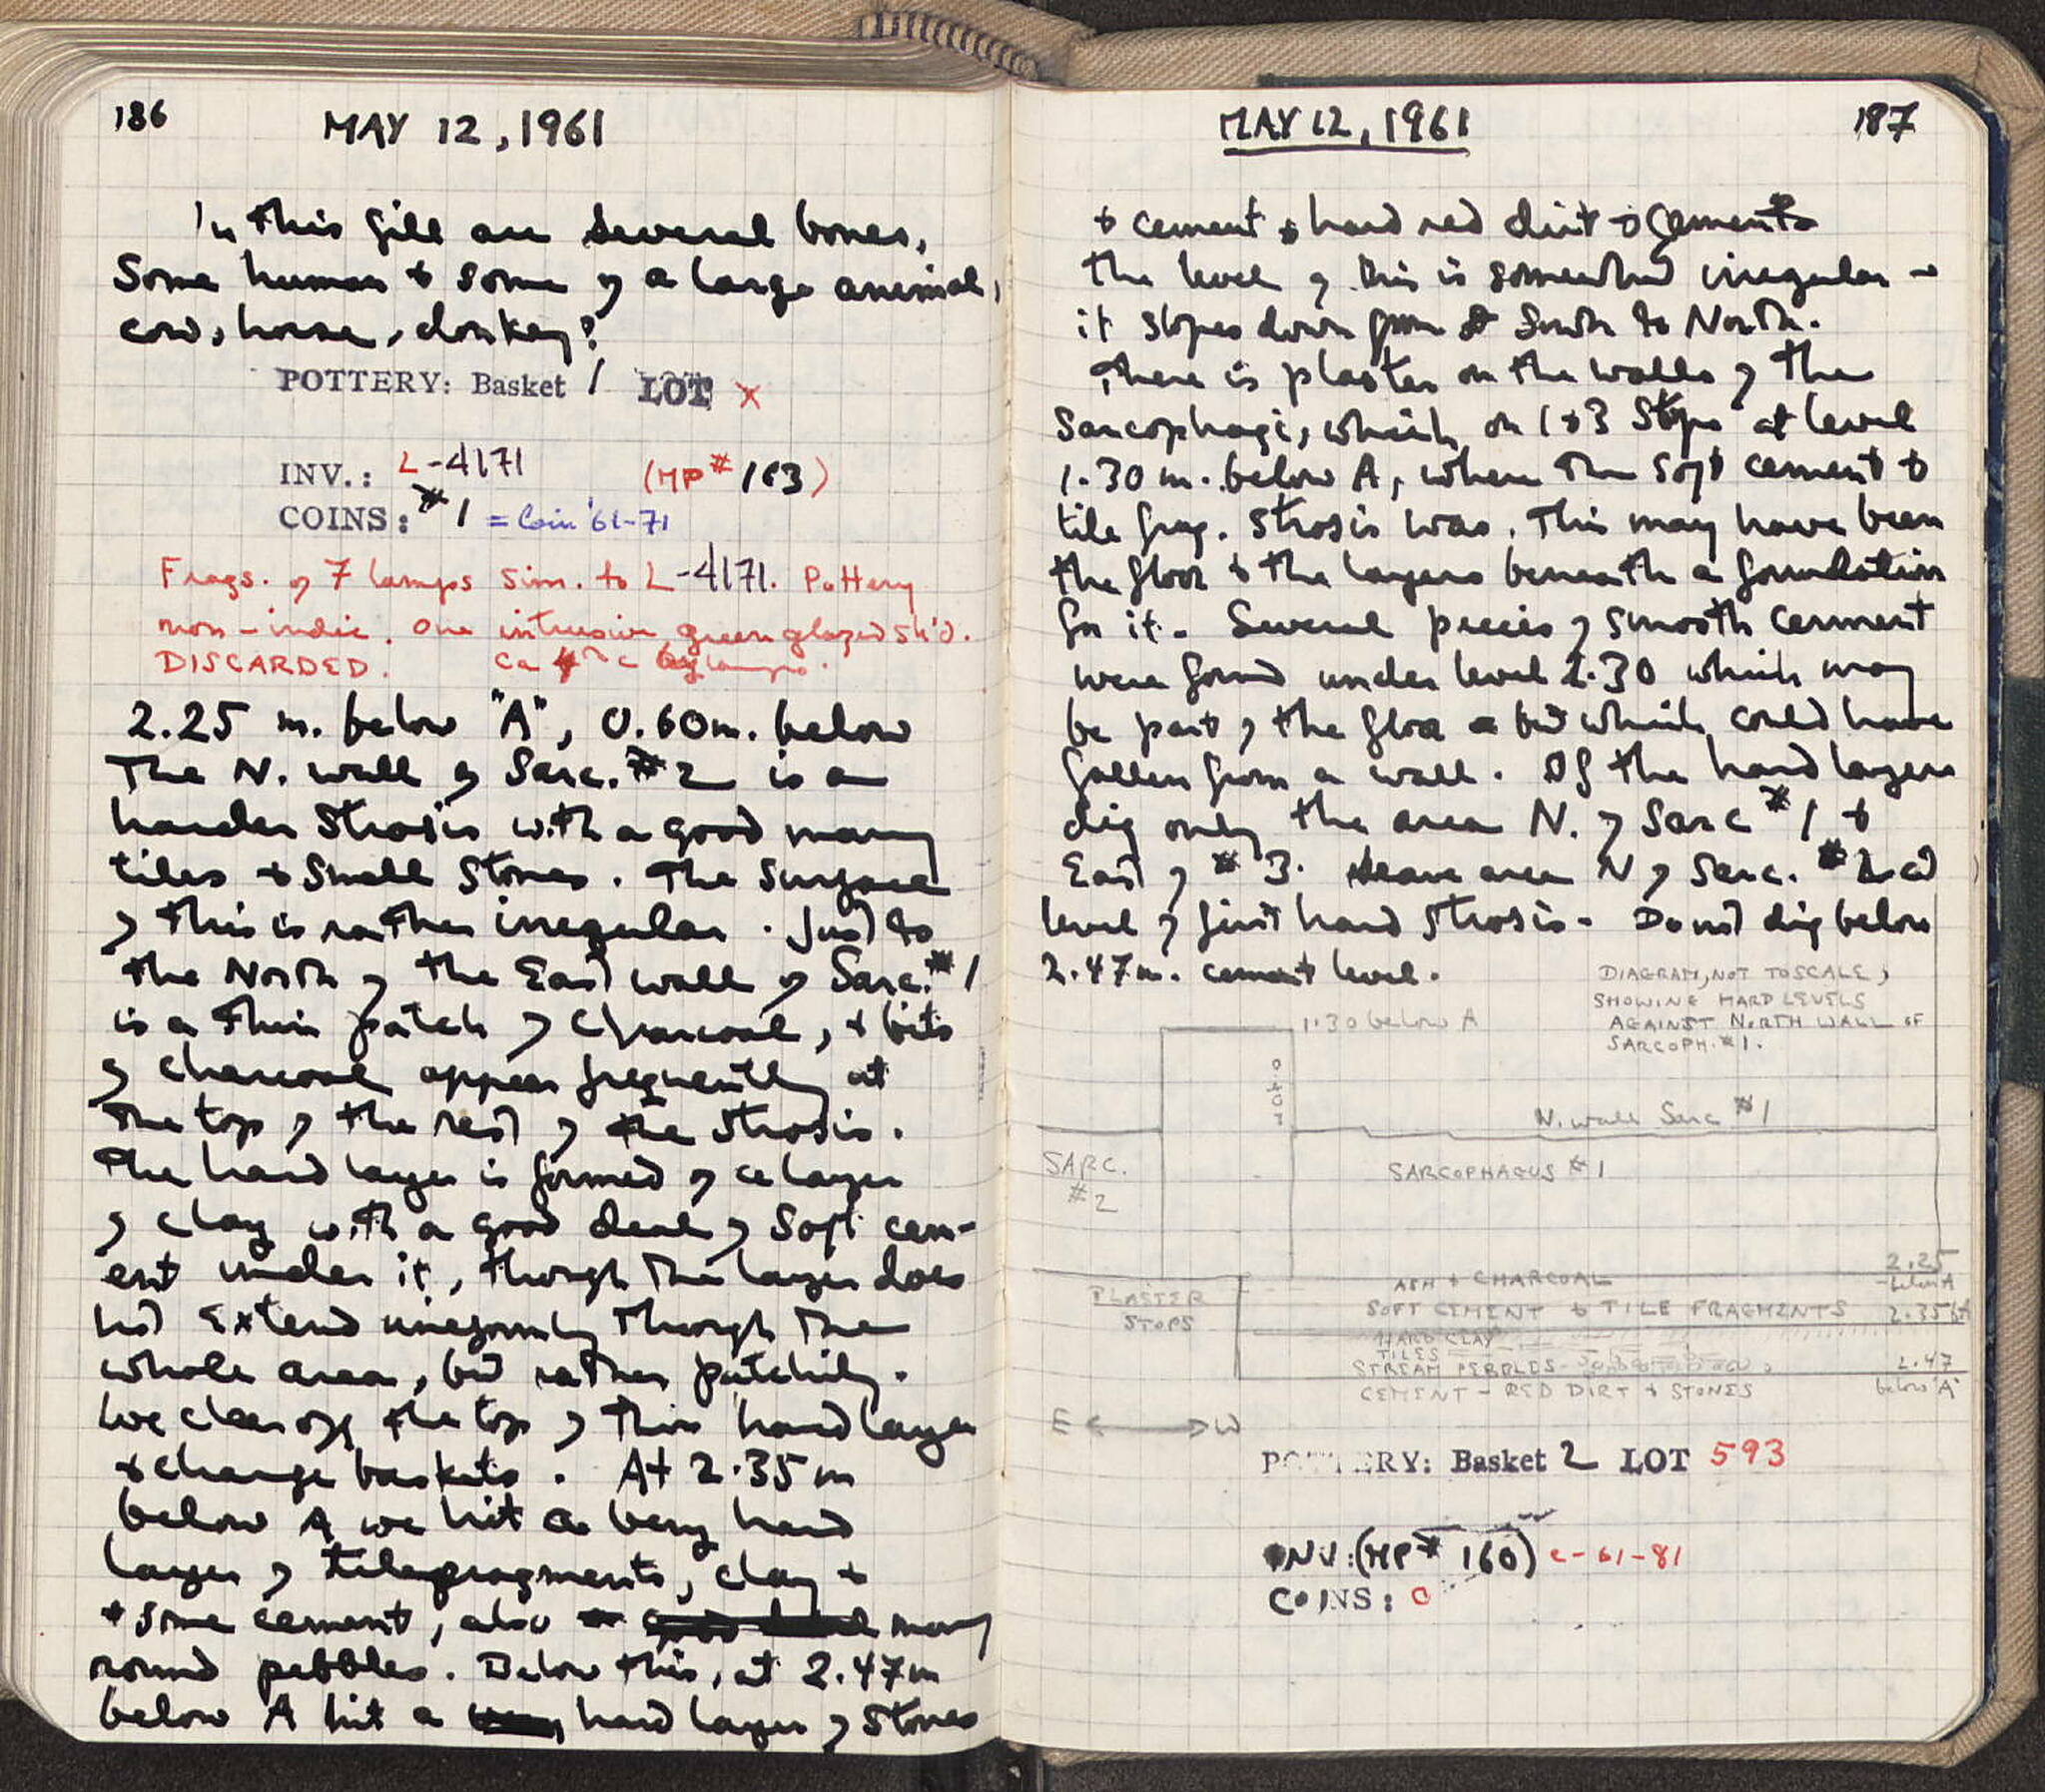 186
MAY 12, 1961
In this fill are several bones,
Some human + some of a large animal,
cow, horse, donkey?
POTTERY: Basket 1 LOT X
INV.: L-4171 (MP# 163)
COINS: #1 = Coin '61-71
Frags. of 7 lamps sim. to L-4171. Pottery
non-indic. One intrusive, green glazed sh'd.
DISCARDED. ca c by lamps.
2.25 m. below "A", 0.60m. below
The N. wall of Sarc. #2 is a
harder strosis with a good many
tiles + small stones. The surface
of this is rather irregular. Just to
the North of the East wall of Sarc. #1
is a thin patch of charcoal, + bits
of charcoal appear frequently at
the top of the rest of the strosis.
The hard layer is formed of a layer
of clay with a good deal of soft cem-
ent under it, though the layer does
not extend uniformly through the
whole area, but rather patchily.
We clean off the top of this hard layer
+ change baskets. At 2.35 m
below A we hit a very hard
layer of tile fragments, clay +
+ some cement, also many
round pebbles. Below this, at 2.47m
below A hit a hard layer of stones
MAY 12, 1961
187
+ cement + hard red dirt + cement
the level of this is somewhat irregular -
it slopes down from South to North.
There is plaster on the walls of the
Sarcophagi, which on 1+3 stops at level
1.30 m. below A, where the soft cement +
tile frag. strosis was. This may have been
the floor + the layers beneath a foundation
for it. Several pieces of smooth cement
were found under level 1.30 which may
be part of the floor or but which could have
fallen from a wall. Of the hard layers
dig only the area N. of Sarc #1 +
East of #3. Leave area N of Sarc. #2 at
level of first hard strosis. Do not dig below
2.47m. cement level.
DIAGRAM, NOT TO SCALE,
SHOWING HARD LEVELS
AGAINST NORTH WALL OF
SARCOPH. #1.
1.30 below A
N. wall Sarc #1
SARC.
#2
SARCOPHAGUS #1
2.25
below A
ASH + CHARCOAL
PLASTER
STOPS
SOFT CEMENT + TILE FRAGMENTS 2.35 bA
HARD CLAY
TILES
STREAM PEBBLES
2.47
below 'A'
CEMENT - RED DIRT + STONES
E W
POTTERY: Basket 2 LOT 593
INV: (MP# 160) C-61-81
COINS: 0